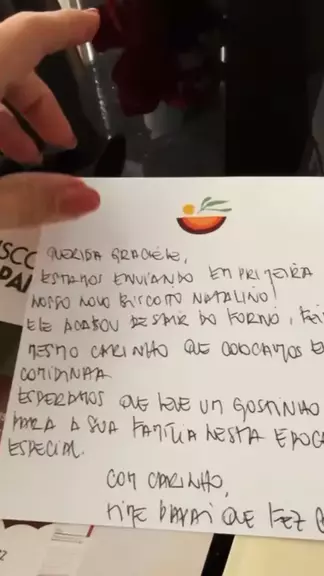 SCO
PA
QUERIDA GRACIÉLE,
ESTAMOS ENVIANDO EM PRIMEIRA
NOSSO NOVO BISCOITO NATALINO!
ELE ACABOU DE SAIR DO FORNO, FEI
MESMO CARINHO QUE COLOCAMOS E
COMIDINHA
ESPERAMOS QUE LEVE UM GOSTINHO
PARA A SUA FAMÍLIA NESTA ÉPOCA
ESPECIAL.
COM CARINHO,
TIME PAPAI QUE FEZ